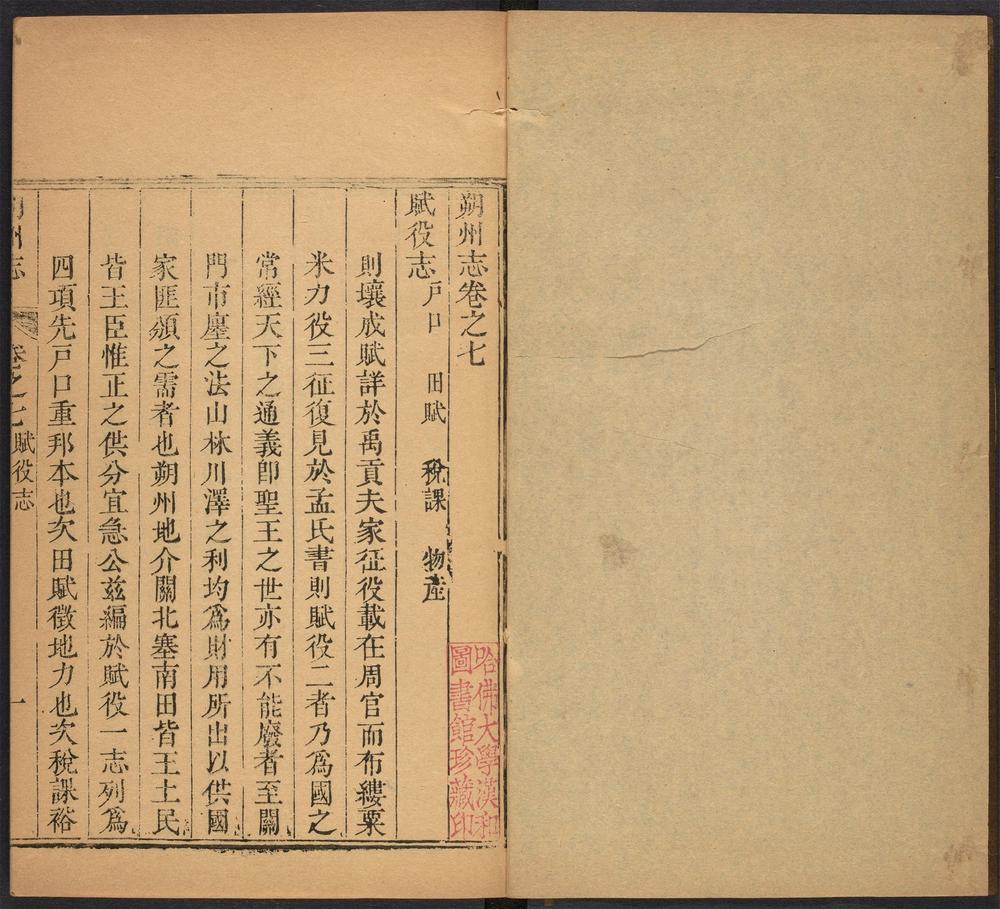 朔州志卷之七
賦役志 戶口 田賦 稅課 物産
則壤成賦詳於禹貢夫家征役載在周官而布縷粟
米力役三征復見於孟氏書則賦役二者乃爲國之
常經天下之通義卽聖王之世亦有不能廢者至關
門市廛之法山林川澤之利均爲財用所出以供國
家匪頒之需者也朔州地介關北塞南田皆王土民
皆王臣惟正之供分宜急公茲編於賦役一志列爲
四項先戶口重邦本也次田賦徵地力也次稅課裕
朔州志 卷之七賦役志 一
哈佛大學漢和
圖書館珍藏印